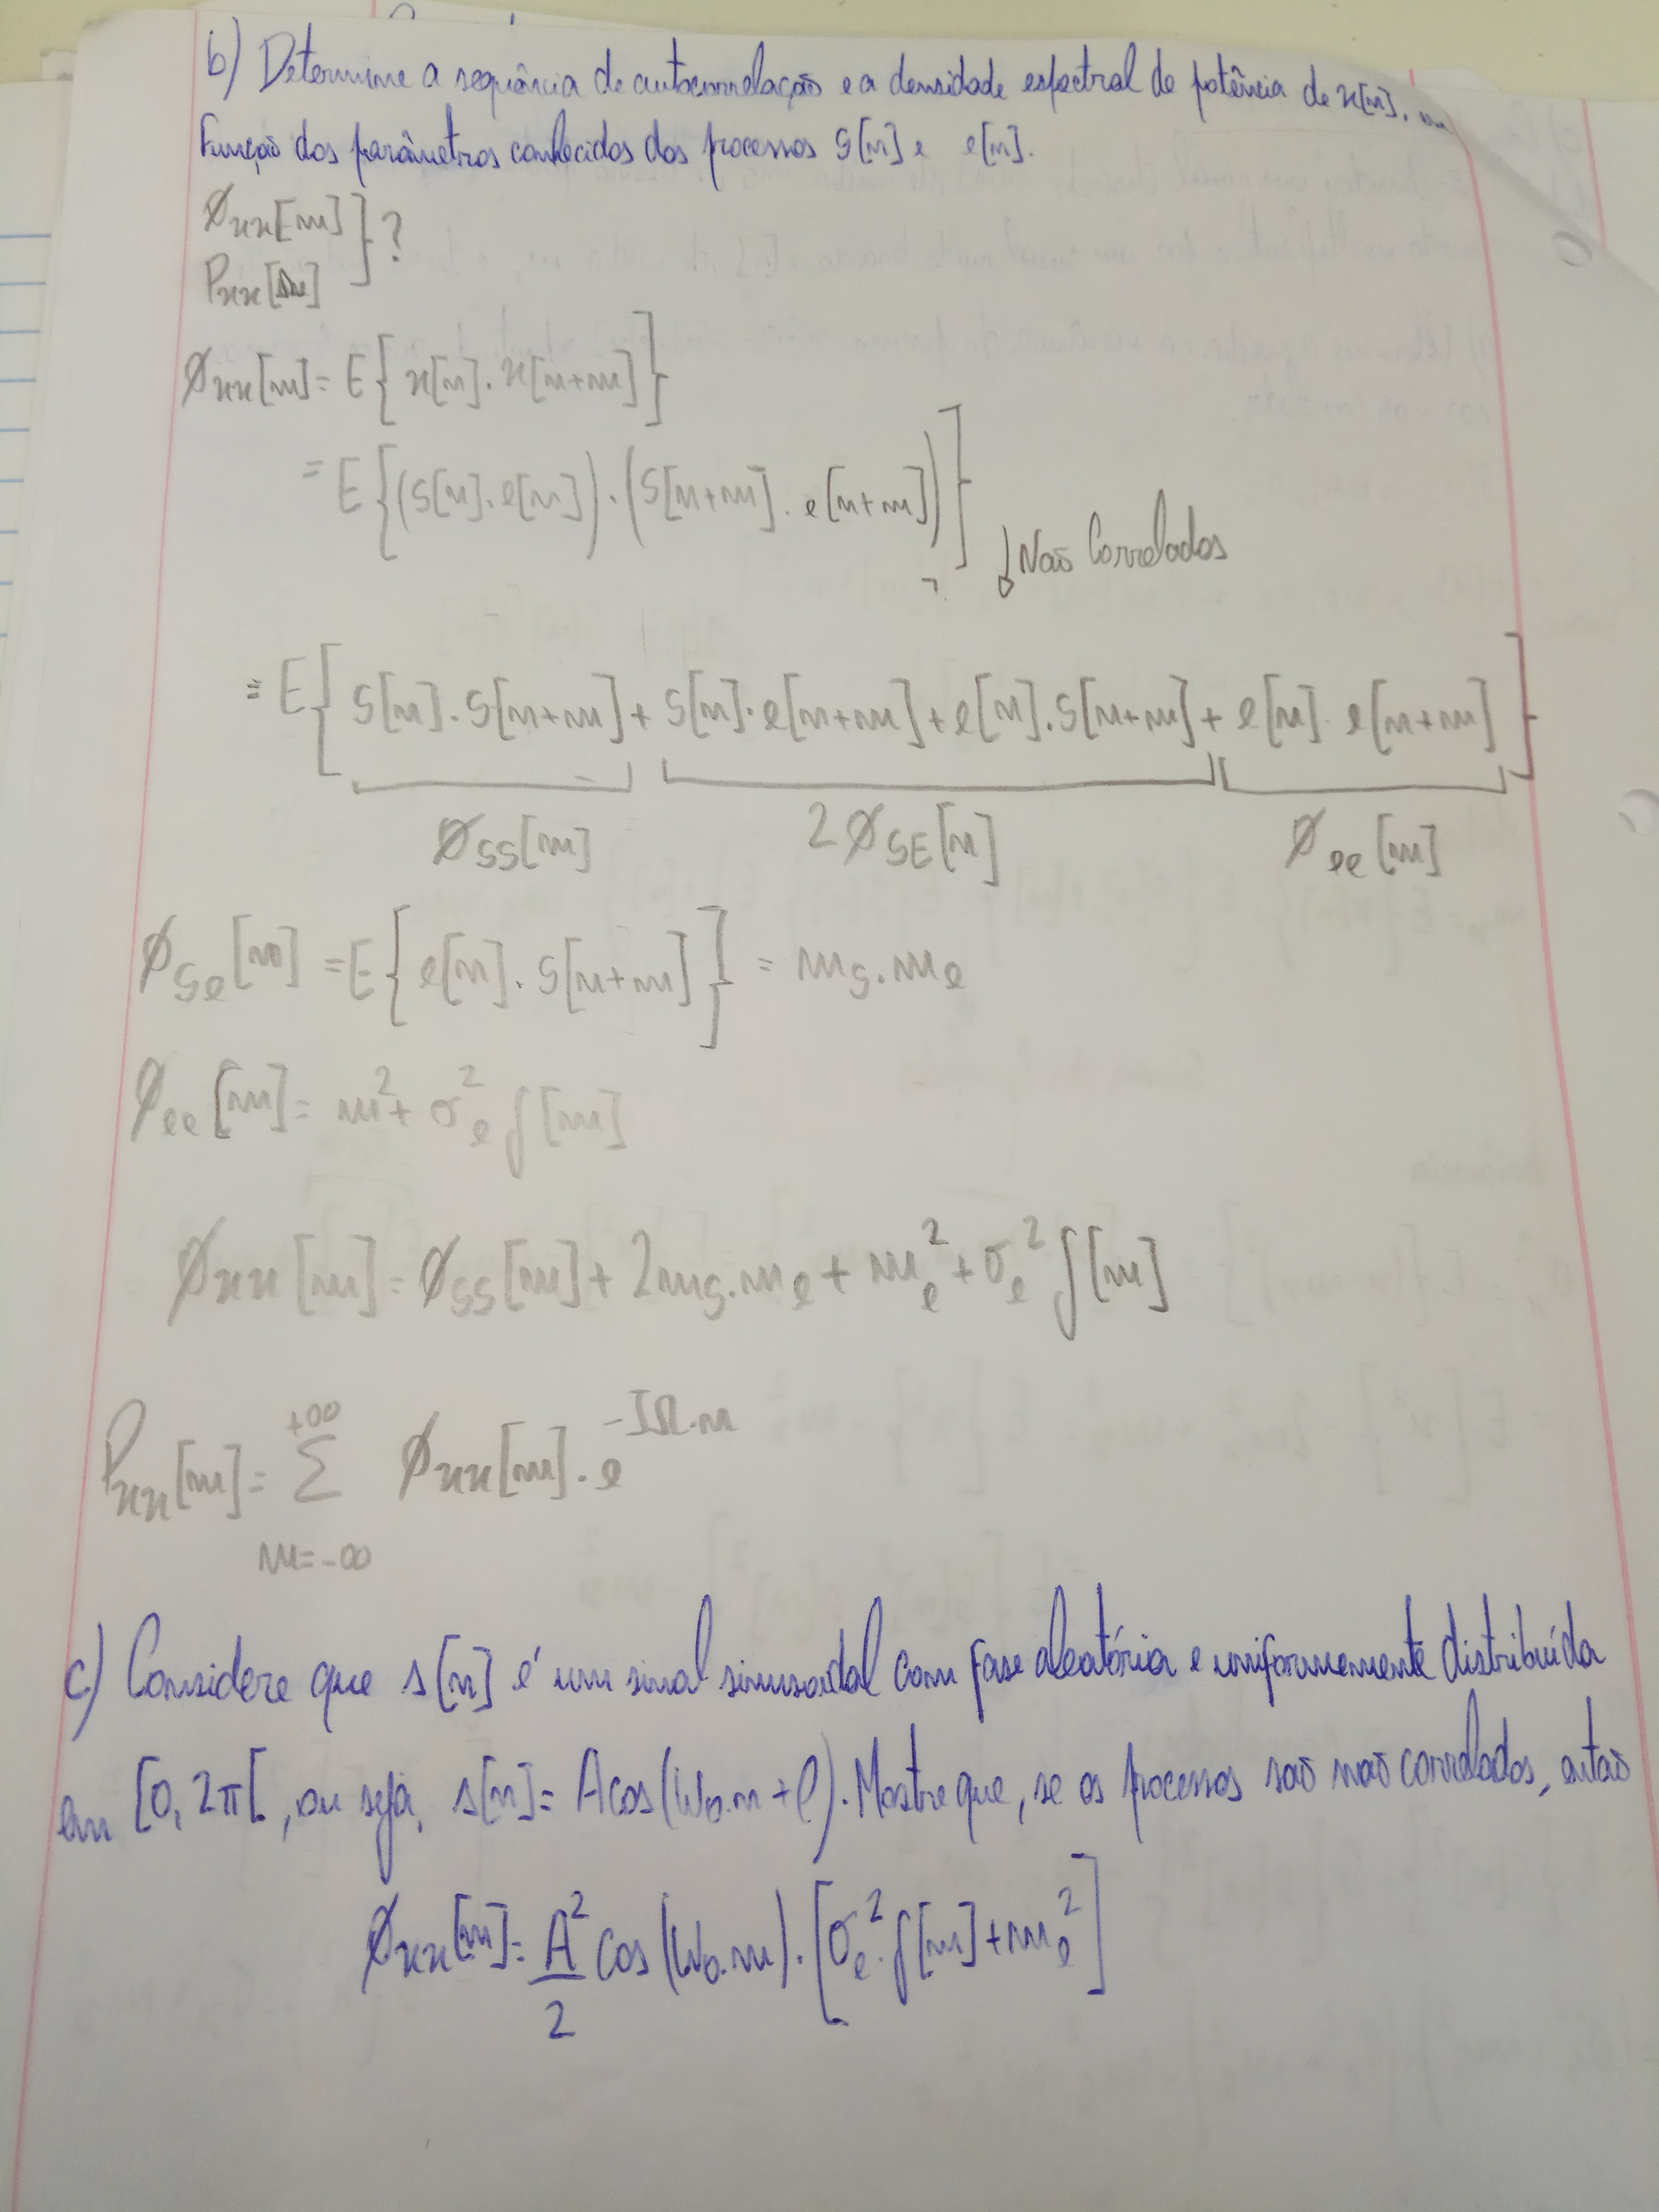 b) Determine a sequência de autocorrelação e a densidade espectral de potência de x[n], em
Função dos parâmetros conhecidos dos processos S[n] e e[n].
Øxx[m] } ?
Pxx[Ω]
Øxx[m] = E{x[n].x[n+m]}
= E{(S[n].e[n]).(S[n+m].e[n+m])}
↓ Não Correlados
= E{S[n].S[n+m]+S[n].e[n+m]+e[n].S[n+m]+e[n].e[n+m]}
Øss[m] 2ØSE[m] Øee[m]
Øse[m] = E{e[n].S[n+m]} = ms.me
Øee[m] = m²+σe² δ[m]
Øxx[m] = Øss[m]+2ms.me+me²+σe² δ[m]
+∞
Pxx[m] = Σ Øxx[m].e^-JΩ.m
m=-∞
c) Considere que s[n] é um sinal sinusoidal com fase aleatória e uniformemente distribuída
em [0, 2π[, ou seja, s[n] = Acos(W0.n+φ). Mostre que, se os processos são não correlados, então
Øxx[m] = A²/2 cos(W0.m).[σe².δ[m]+me²]